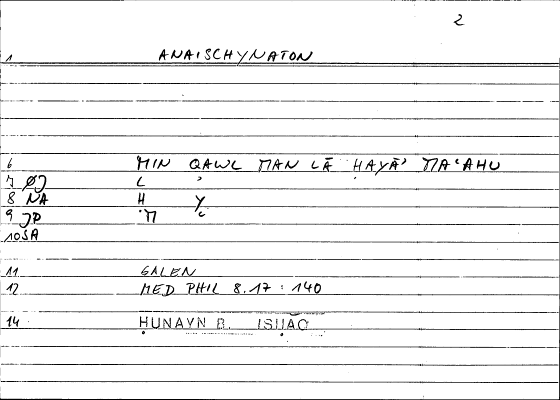 2
1 ANAISCHYNATON
6 MIN QAWL MAN LĀ ḤAYĀʾ MAʿAHU
7 ØJ L ʾ
8 NA H Y
9 JP M ʿ
10 SA
11 GALEN
12 MED PHIL 8.17 : 140
14 ḤUNAYN B. ISḤĀQ